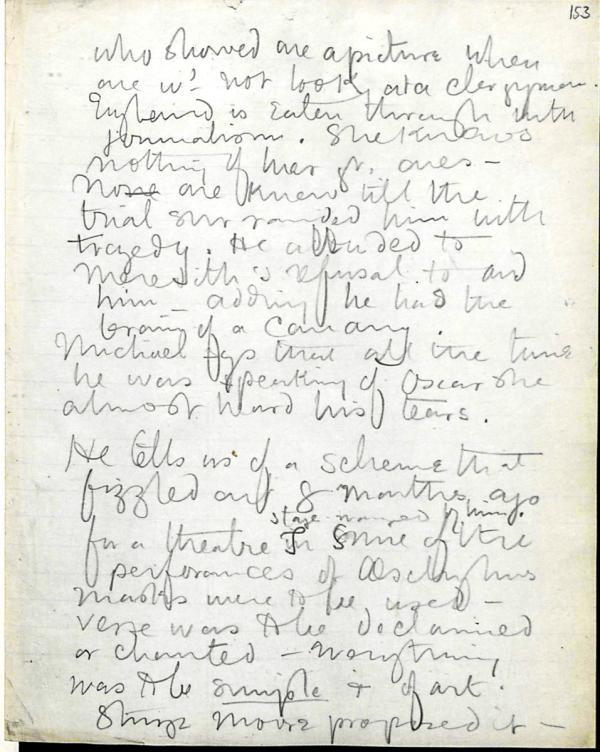 153
who showed one a picture when
one wd. not look at a clergyman.
England is eaten through with
journalism. She knows
nothing of her gr. ones —
None one knew till the
trial surrounded him with
tragedy. He alluded to
Meredith's refusal to aid
him — adding he had the
brain of a Canary.
Michael says that all the time
he was speaking of Oscar she
almost heard his tears.
He tells us of a scheme that
fizzled out 8 months ago
stage managed by him.
for a theatre In Some of the
perforances of Aeschylus
masks were to be used —
verse was to be declaimed
or chanted — everything
was to be simple & of art.
Sturge Moore proposed it —